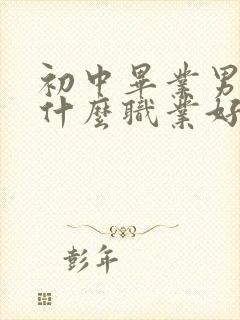 初中畢業男
什麼職業好
彭年